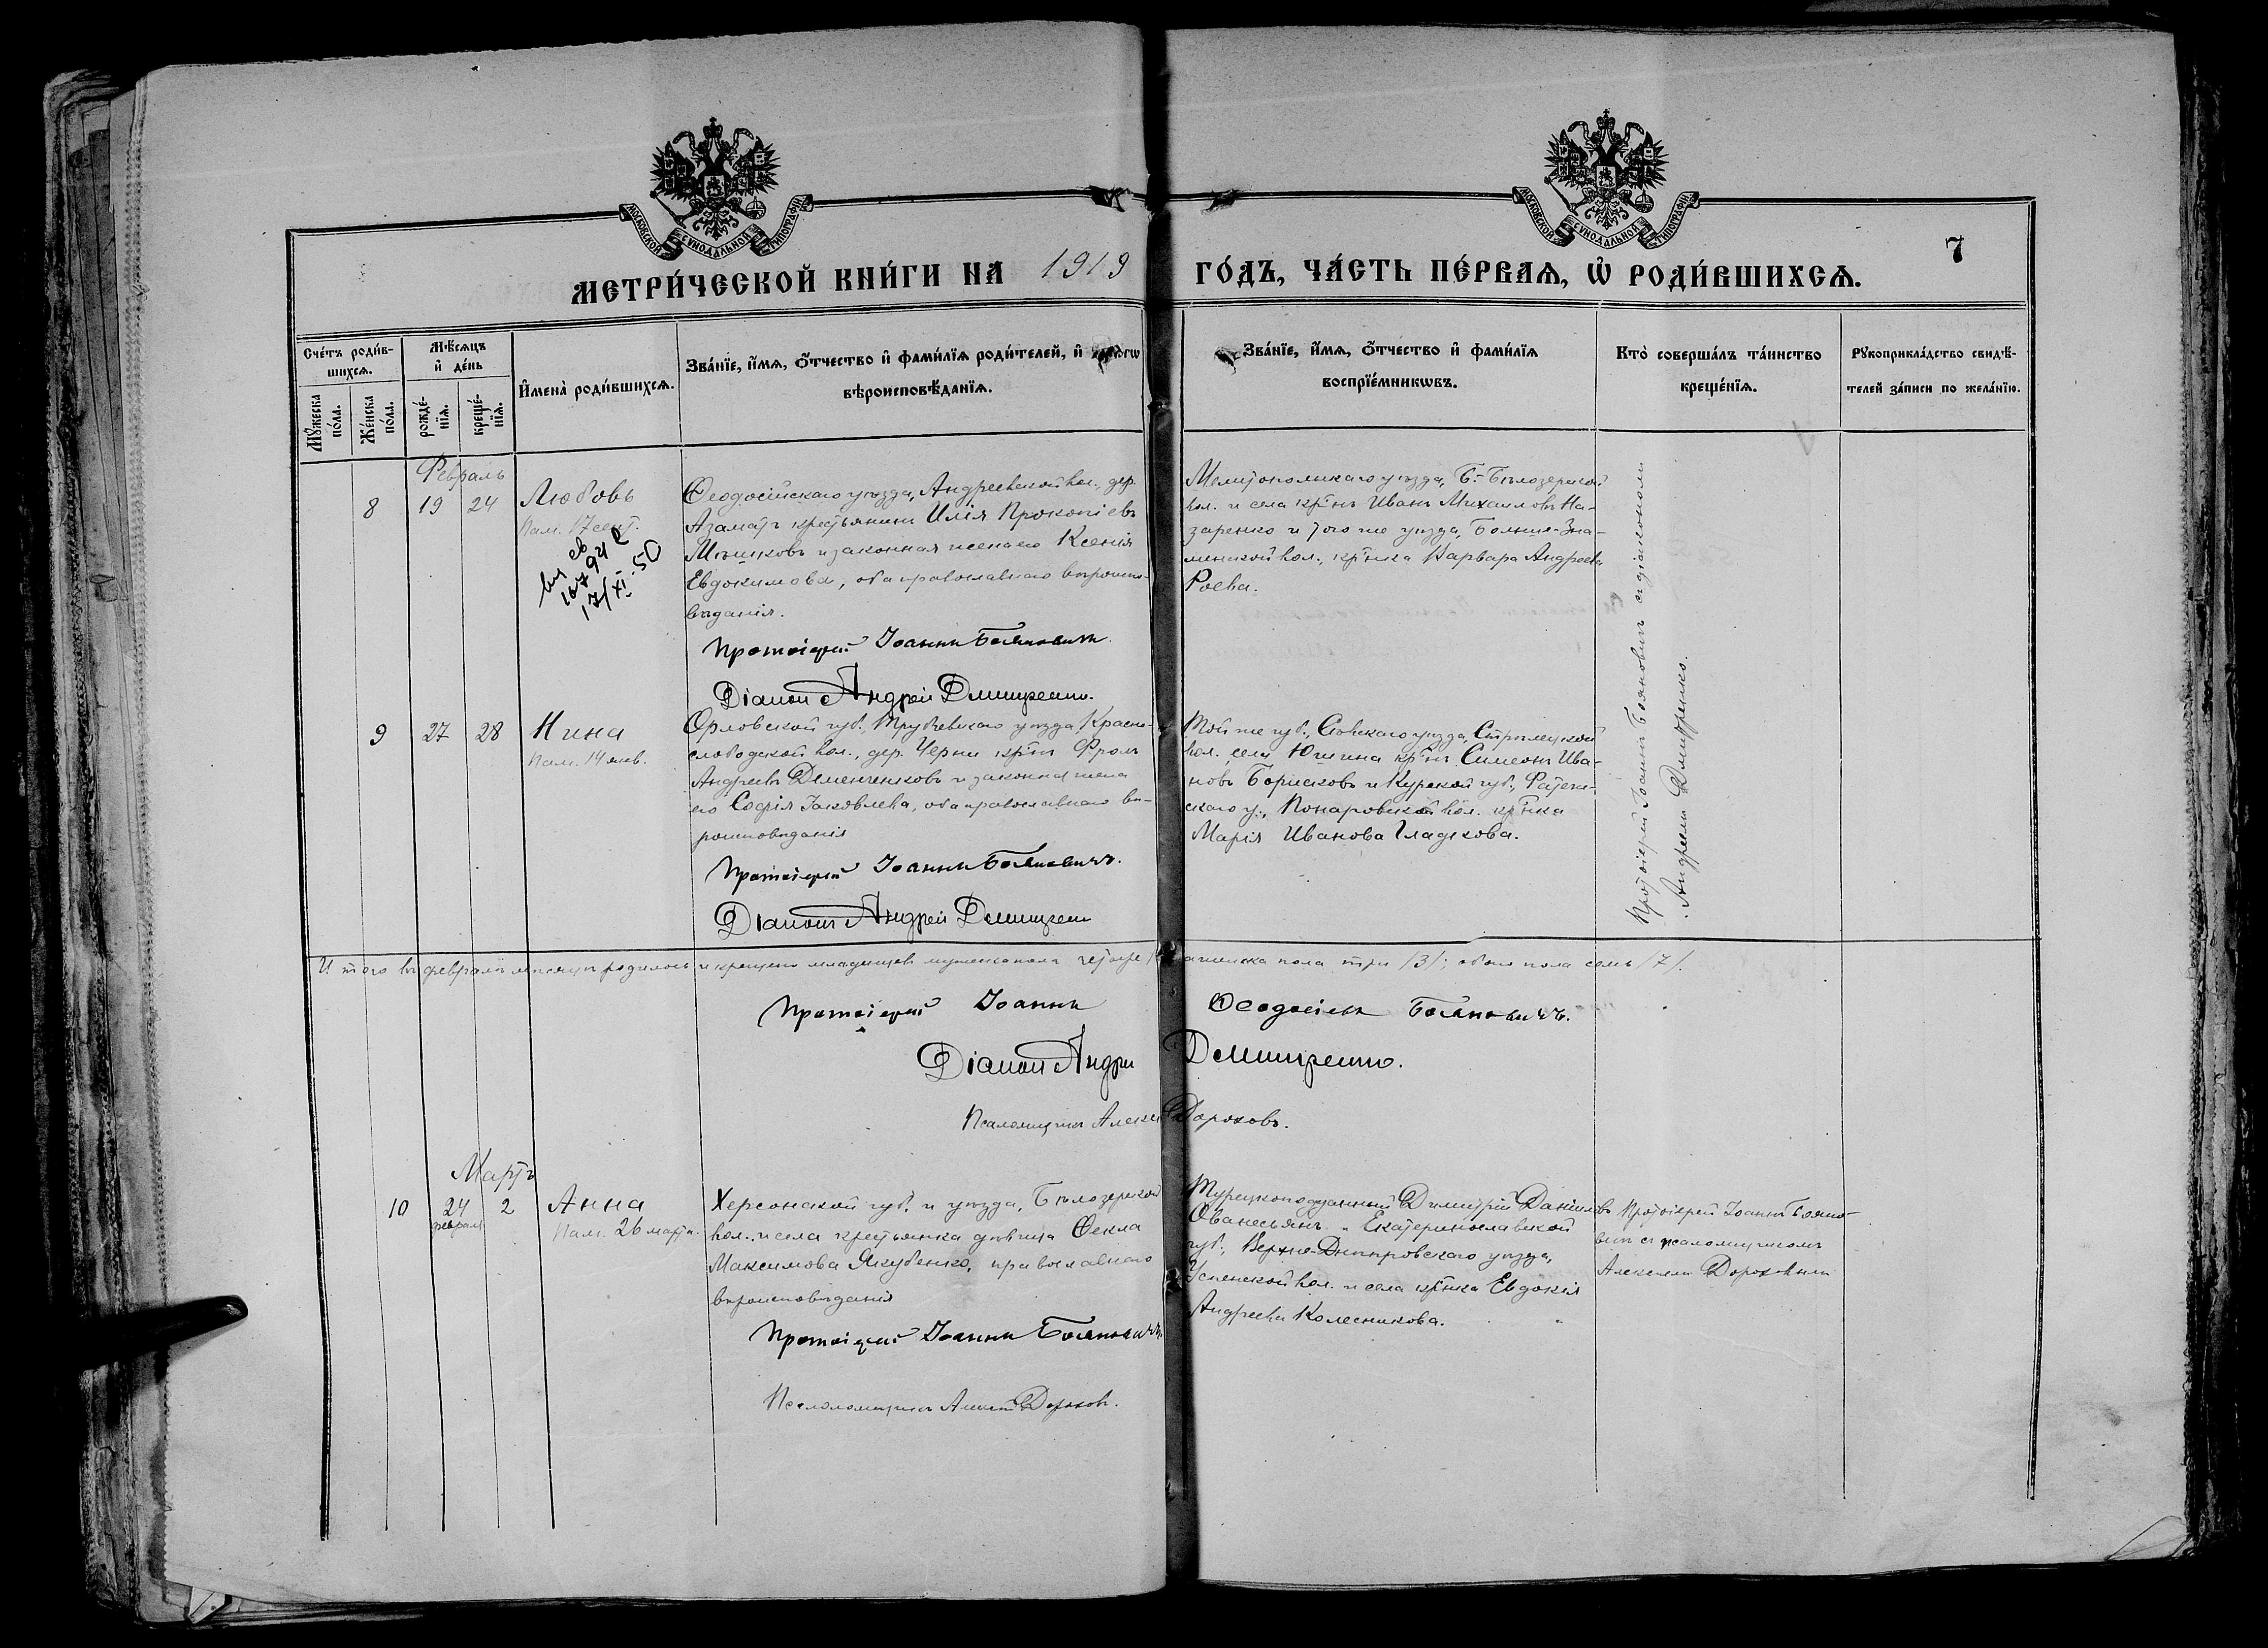 МОСКОВСКОЙ СѴНОДАЛЬНОЙ ТИПОГРАФІИ
МОСКОВСКОЙ СѴНОДАЛЬНОЙ ТИПОГРАФІИ
7
МЕТРИ́ЧЕСКОЙ КНИ́ГИ НА 1919 ГО́ДЪ, ЧА́СТЬ ПЕ́РВАѦ, Ѡ҆ РОДИ́ВШИХСѦ.
Сче́тъ роди́в-
шихсѧ.
Мꙋ́жеска по́ла.
Же́нска по́ла.
Мѣ́сѧцъ и҆ де́нь
рожде́-нїѧ.
креще́-нїѧ.
И҆мена̀ роди́вшихсѧ.
Зва́нїе, и҆́мѧ, ѻ҆́тчество и҆ фами́лїѧ роди́телей, и҆
вѣроисповѣ́данїѧ.
Зва́нїе, и҆́мѧ, ѻ҆́тчество и҆ фами́лїѧ
воспрїе́мникѡвъ.
Кто̀ соверша́лъ та́инство
креще́нїѧ.
Рꙋкоприкла́дство свидѣ́-
телей за́писи по жела́нїю.
Февраль
8 19 24 Любовь
Пам. 17 сент.
17/XI-50
Ѳеодосійскаго уѣзда, Андреевской вол., дер.
Агаматъ крестьянинъ Илія Прокопіевъ
Мѣшковъ и законная жена его Ксенія
Евдокимова, оба православнаго вѣроиспо-
вѣданія.
Протоіерей Іоаннъ Бояновичъ.
Діаконъ Андрей Дмитренко.
Мелитопольскаго уѣзда, Б.-Бѣлозерской
вол. и села кр-нъ Иванъ Михаиловъ На-
заренко и того же уѣзда, Больше-Зна-
менской вол., кр-нка Варвара Андреева
Роева.
Протоіерей Іоаннъ Бояновичъ съ діакономъ
Андреемъ Дмитренко.
9 27 28 Нина
Пам. 14 янв.
Орловской губ., Трубчевскаго уѣзда, Красно-
слободской вол., дер. Черни кр-нъ Фролъ
Андреевъ Деменченковъ и законная жена
его Софія Іаковлева, оба православнаго вѣ-
роисповѣданія
Протоіерей Іоаннъ Бояновичъ.
Діаконъ Андрей Дмитренко
Той же губ., Сѣвскаго уѣзда, Стрѣлецкой
вол. села Юшина кр-нъ Симеонъ Ива-
новъ Борисковъ и Курской губ., Фатеж-
скаго у., Понаровской вол. кр-нка
Марія Иванова Гладкова.
Итого въ февралѣ мѣсяцѣ родилось и крещено младенцевъ мужеска пола четыре, женска пола три /3/; обоего пола семь /7/.
Протоіерей Іоаннъ Ѳеодосіевъ Бояновичъ.
Діаконъ Андрей Дмитренко.
Псаломщикъ Алексей Дороховъ.
Мартъ
10 24 февраля 2 Анна
Пам. 26 марта.
Херсонской губ. и уѣзда, Бѣлозерской
вол. и села крестьянка дѣвица Ѳекла
Максимова Якубенко, православнаго
вѣроисповѣданія
Протоіерей Іоаннъ Бояновичъ.
Псаломщикъ Алексей Дороховъ.
Турецкоподданный Димитрій Даниловъ
Ованесьянъ и Екатеринославской
губ., Верхне-Днѣпровскаго уѣзда,
Успенской вол. и села кр-нка Евдокія
Андреева Колесникова.
Протоіерей Іоаннъ Бояно-
вичъ съ псаломщикомъ
Алексеемъ Дороховымъ